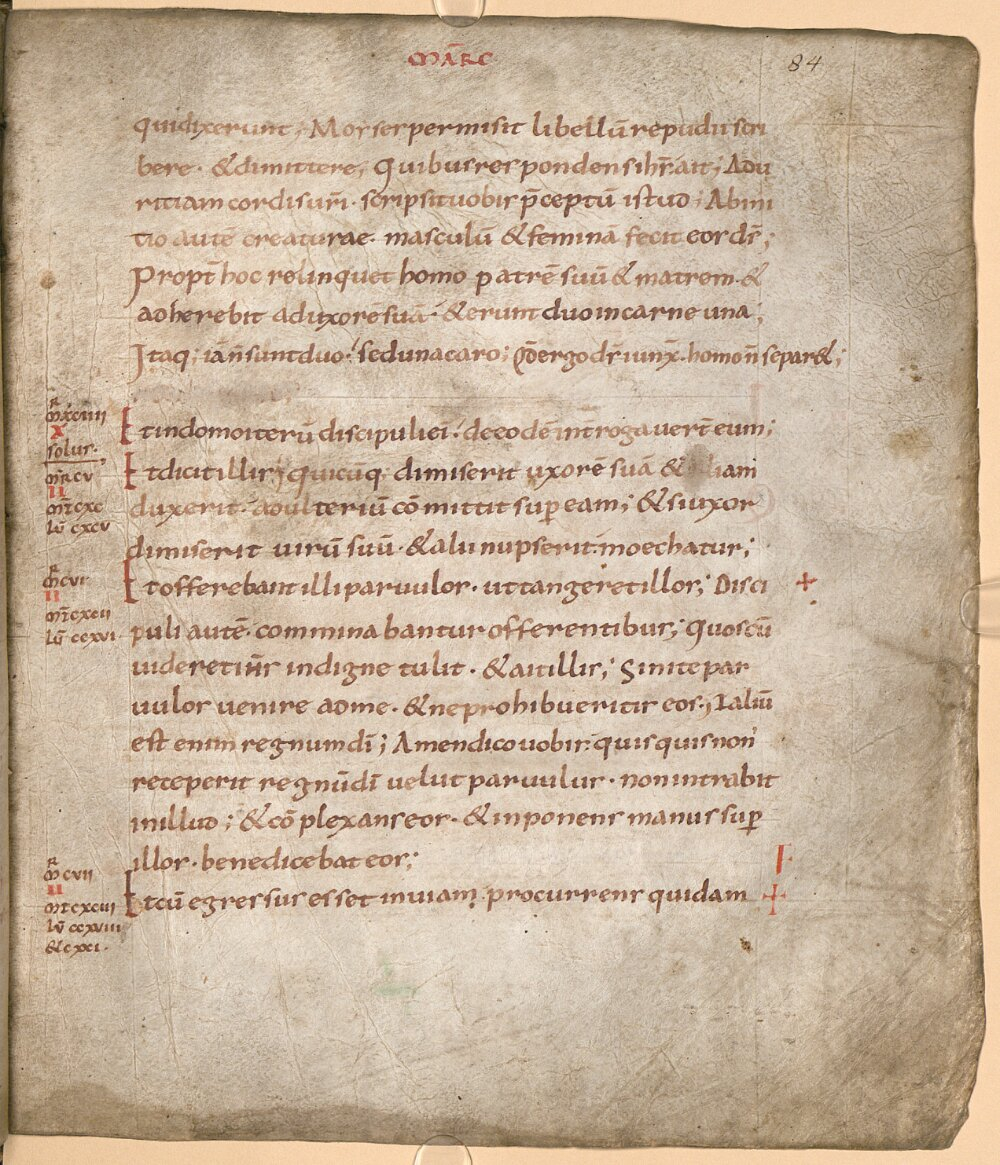 MARC
84
qui dixerunt; Moyses permisit libellū repudii scri
bere · & dimittere; Quibus respondens ihs ait; Adu
ritiam cordis uri · scripsit uobis p̄ceptū istud; Ab ini
tio autē creaturae · masculū & feminā fecit eos ds̄;
Propt̄ hoc relinquet homo patrē suū & matrem · &
adherebit ad uxorē suā · & erunt duo in carne una;
Itaq; iā n̄ sunt duo · sed una caro; Qd̄ ergo ds̄ iunx̄ · homo n̄ separ&;
Et in domo iterū discipuli ei · de eodē int̄rogauer̄t eum;
Et dicit illis; quicūq; dimiserit uxorē suā & aliam
duxerit · adulteriū cōmittit sup eam; & si uxor
dimiserit uirū suū · & alii nupserit · moechatur;
Et offerebant illi paruulos · ut tangeret illos; Disci
puli autē · comminabantur offerentibus; Quos cū
uideret ihs̄ indigne tulit · & ait illis; Sinite par
uulos uenire ad me · & ne prohibueritis eos; Taliū
est enim regnum dī; Amen dico uobis · quisquis non
receperit regnū dī uelut paruulus · non intrabit
in illud; & cōplexans eos · & inponens manus sup
illos · benedicebat eos;
Et cū egressus esset in uiam · procurrens quidam
MR̄ CIIII
X
solus ·
MR̄ CV
II
MT̄ CXC
LŪ CXCV
MR̄ CVI
II
MT̄ CXCII
LŪ CCXVI
MR̄ CVII
II
MT CXCIII
LŪ CCXVIII
& CXXI ·
F